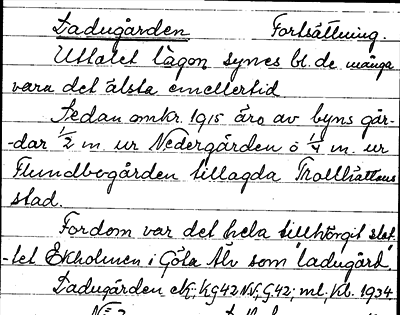 Ladugården Fortsättning.
Uttalet lagon synes bl. de många
vara det älsta emellertid
Sedan omkr. 1915 äro av byns går-
-dar 1/2 m. ur Nedergården o 1/4 m. ur
Flundbogården tillagda Trollhättans
stad.
Fordom var det hela tillhörigt slot-
-tet Ekholmen i Göta Älv som "ladugård".
Ladugården 1934.